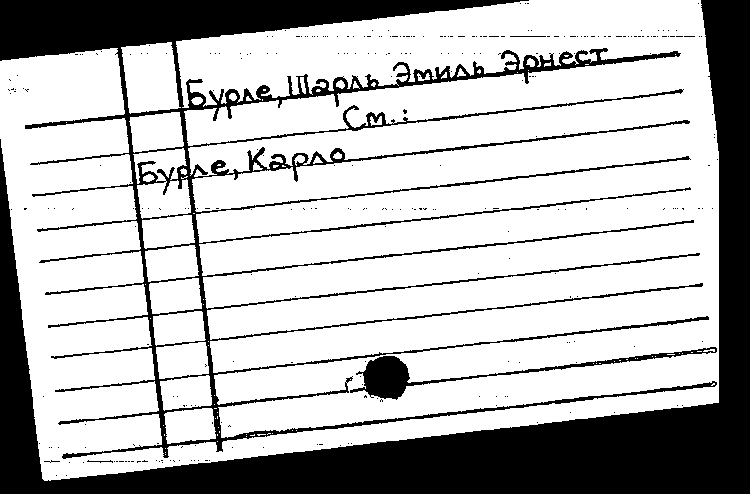 Бурле, Шарль Эмиль Эрнест
См.:
Бурле, Карло